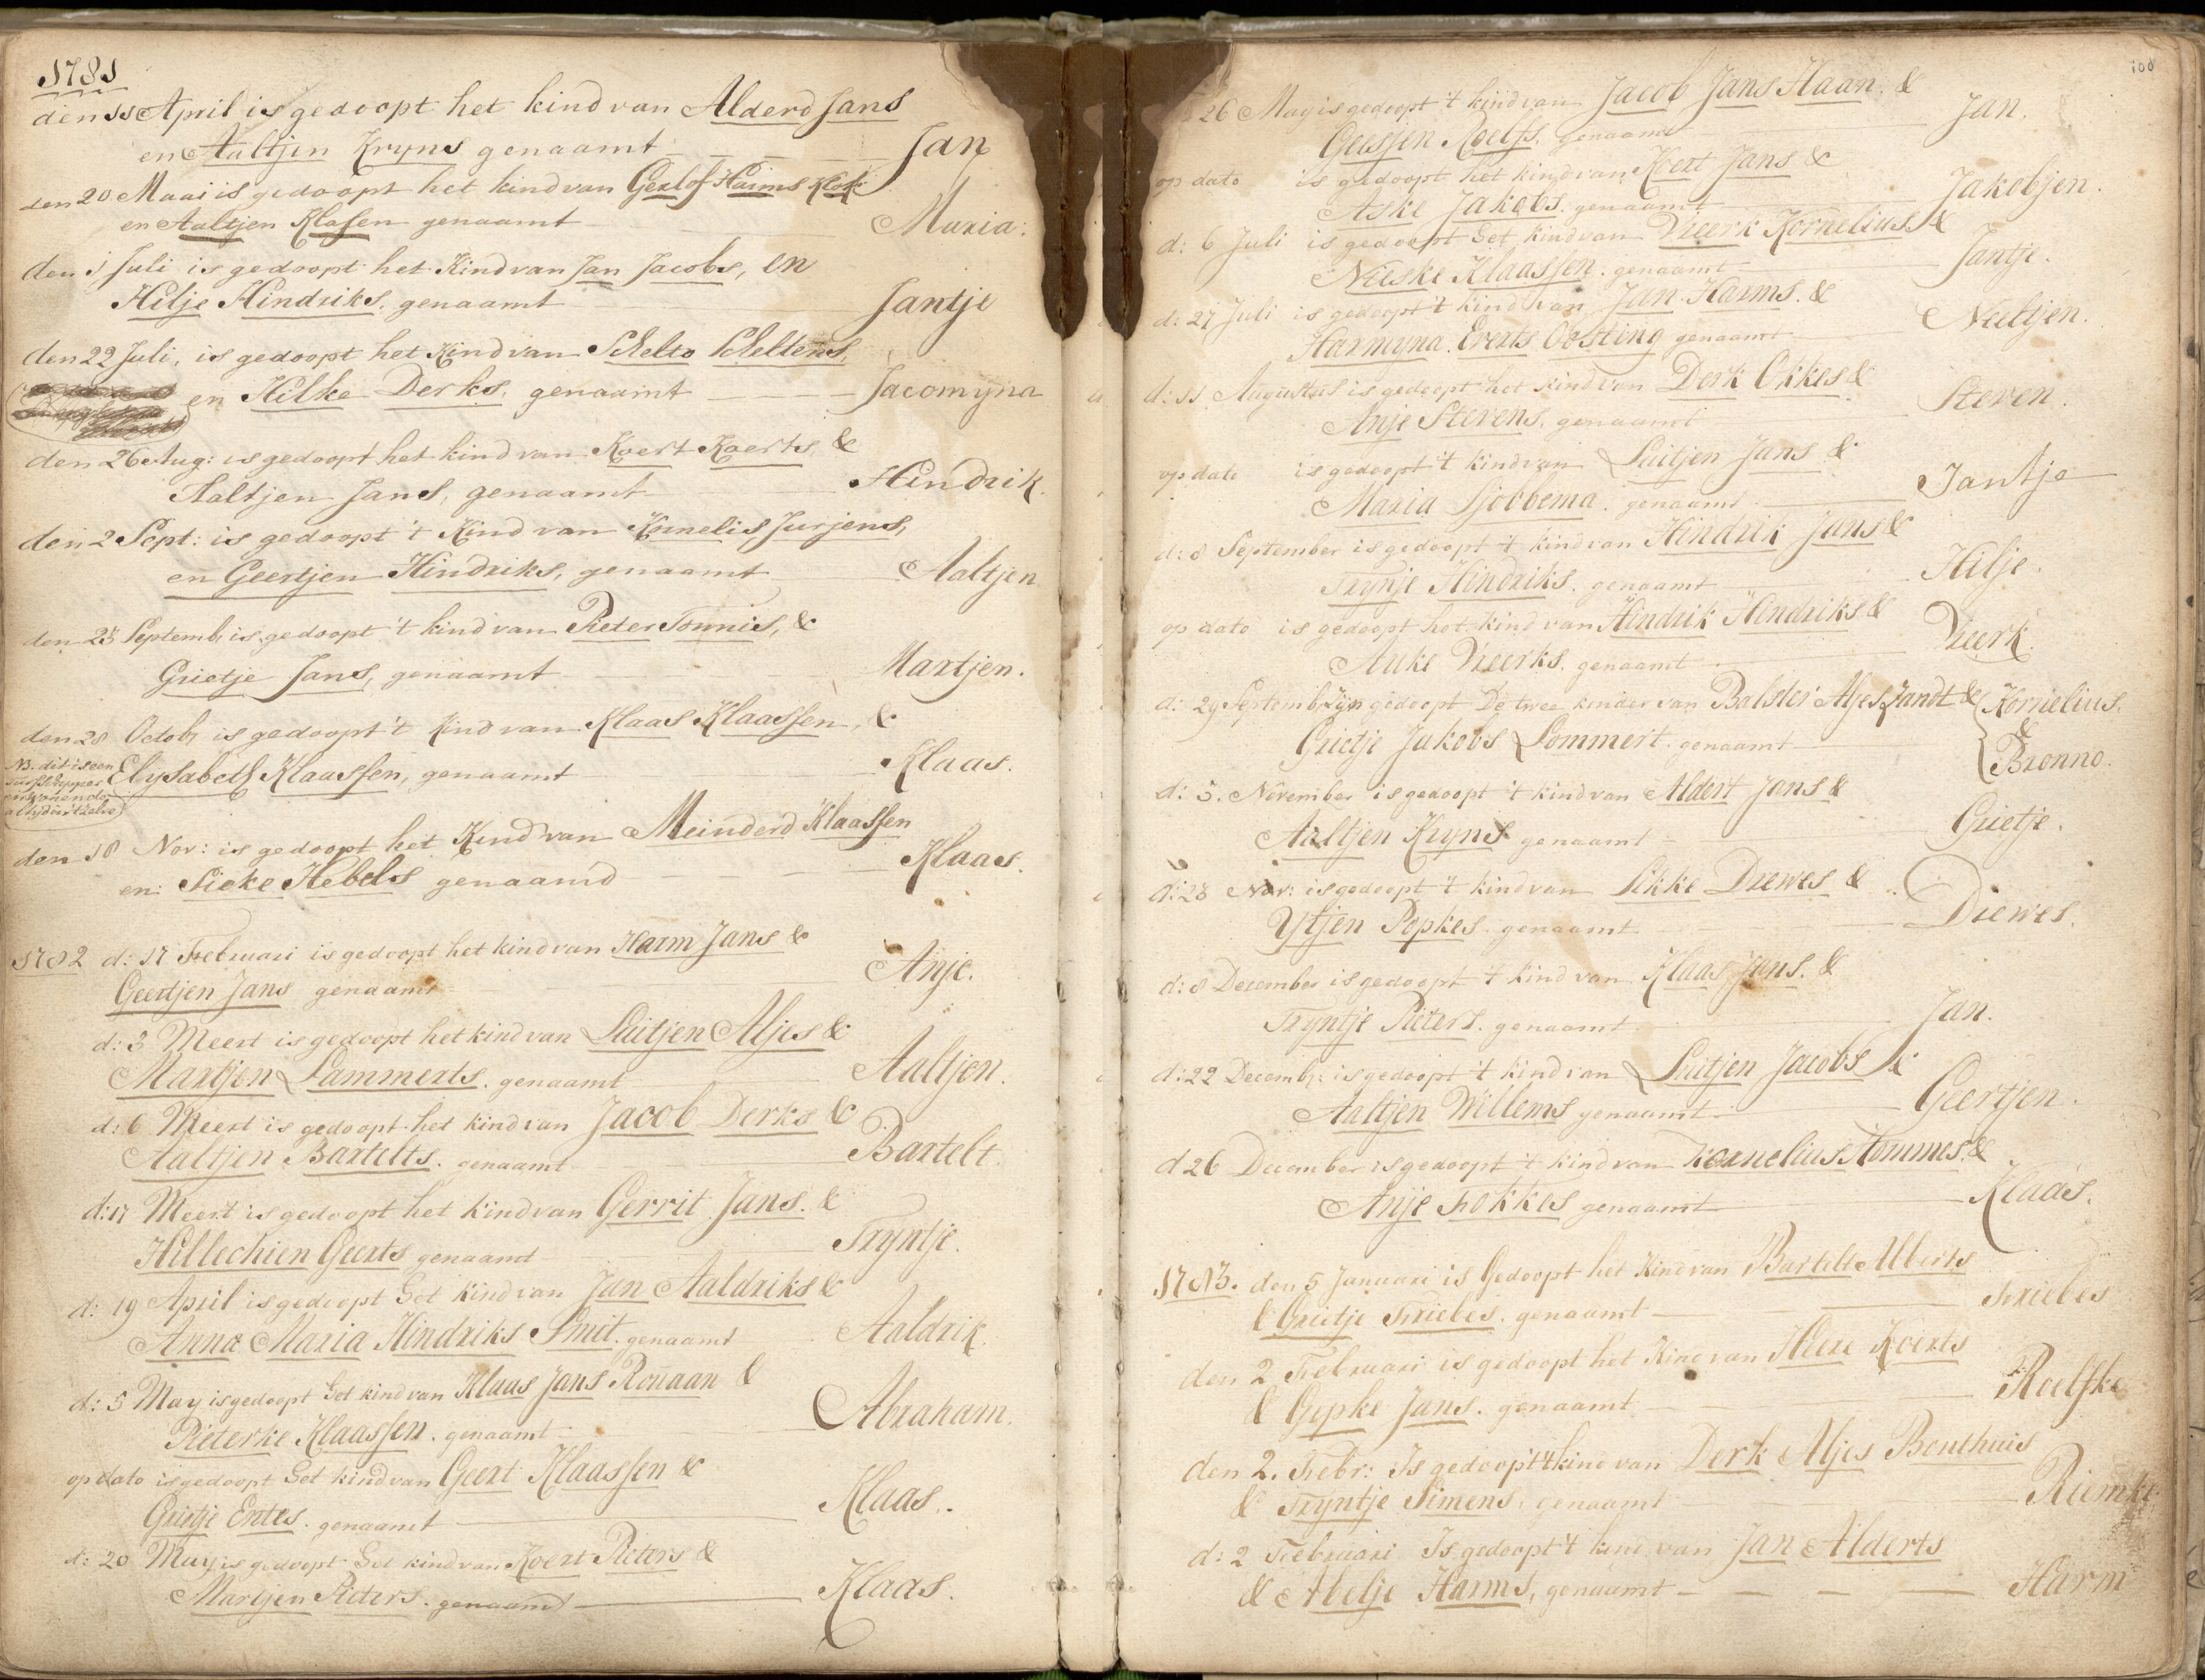 1781
den 11 April is gedoopt het kind van Alderd Jans
en Aaltjen Kryns genaamt Jan
den 20 Maai is gedoopt het kind van Gerlof Harms Klok
en Aaltjen Klasen genaamt Maria:
den 1 Juli is gedoopt het Kind van Jan Jacobs, en
Hilje Hindriks, genaamt Jantje
den 22 Juli, is gedoopt het Kind van Schelto Scheltens,
en Hilke Derks, genaamt Jacomyna
den 26 Aug: is gedoopt het kind van Koert Koerts &
Aaltjen Jans, genaamt Hindrik.
den 2 Sept: is gedoopt 't Kind van Kornelis Jurjens,
en Geertjen Hindriks, genaamt Aaltjen
den 23 Septemb, is gedoopt 't kind van Pieter Tonnis, &
Grietje Jans, genaamt Martjen.
den 28 Octob, is gedoopt 't Kind van Klaas Klaassen, &
NB. dit is een
Elysabeth Klaassen, genaamt Klaas.
den 18 Nov: is gedoopt het Kind van Meinderd Klaassen
en: Sieke Hebels genaamd Klaas.
1782 d: 17 Februari is gedoopt het kind van Harm Jans &
Geertjen Jans genaamt Anje.
d: 3 Meert is gedoopt het kind van Luitjen Aljes &
Martjen Lammerts. genaamt Aaltjen.
d: 6 Meert is gedoopt het kind van Jacob Derks &
Aaltjen Bartelts. genaamt Bartelt.
d: 17 Meert is gedoopt het kind van Gerrit Jans. &
Hillechien Geerts genaamt Tryntje.
d: 19 April is gedoopt het kind van Jan Aaldriks &
Anna Maria Hindriks Smit. genaamt Aaldrik.
d: 5 May is gedoopt het kind van Klaas Jans Rouaan &
Pieterke Klaassen. genaamt Abraham.
op dato is gedoopt het kind van Geert Klaassen &
Grietje Entes. genaamt Klaas.
d: 20 May is gedoopt het kind van Koert Pieters &
Martjen Pieters. genaamt Klaas.
100
26 May is gedoopt 't kind van Jacob Jans Haan. &
Geessjen Roelfs. genaamt Jan.
op dato is gedoopt het kind van Koert Jans &
Aske Jakobs. genaamt Jakobjen.
d: 6 Juli is gedoopt het kind van Vieerk Kornelius. &
Nieske Klaassen. genaamt Jantje.
d: 27 Juli is gedoopt 't kind van Jan Harms. &
Harmyna. Everts Oosting genaamt Neeltjen.
d: 11 Augustus is gedoopt het kind van Derk Okkes &
Anje Stevens. genaamt Steven.
op dato is gedoopt 't kind van Luitjen Jans &
Maria Sjobbema. genaamt Jantje
d: 8 September is gedoopt 't kind van Hindrik Jans &
Trynje Hindriks. genaamt Hilje.
op dato is gedoopt het kind van Hindrik Hindriks &
Auke Vieerks. genaamt Vieerk.
d: 29 Septemb. zyn gedoopt De twee kinder van Balster Aljes Zandt & Kornelius.
Grietje Jakobs Lommert. genaamt & Bronno.
d: 3. November is gedoopt 't kind van Aldert Jans &
Aaltjen Kryns genaamt Grietje.
d: 28 Nov: is gedoopt 't kind van Sikke Drewes &
Ytjen Popkes. genaamt Drewes.
d: 8 December is gedoopt 't kind van Klaas Jans. &
Tryntje Pieters. genaamt Jan.
d: 22 Decemb: is gedoopt 't kind van Luitjen Jacobs &
Aaltjen Willems genaamt Geertjen.
d 26 December is gedoopt 't kind van Kornelius Hommes. &
Anje Fokkes genaamt Klaas.
1783. den 5 Januari is Gedoopt het Kind van Bartelt Alberts
& Grietje Friebes. genaamt Friebes
den 2 Februari is gedoopt het Kind van Heere Koerts
& Gepke Jans. genaamt Roelfke
den 2. Febr: Is gedoopt 't kind van Derk Aljes Bonthuis
& Tryntje Simens, genaamt Riemke
d: 2 Februari Is gedoopt 't kind van Jan Alderts
& Abelje Harms, genaamt Harm